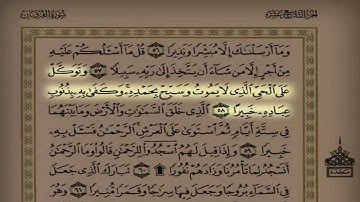 الجزء التاسع عشر سورة الفرقان
وَمَآ أَرْسَلْنَٰكَ إِلَّا مُبَشِّرًا وَنَذِيرًا ٥٦ قُلْ مَآ أَسْـَٔلُكُمْ عَلَيْهِ
مِنْ أَجْرٍ إِلَّا مَن شَآءَ أَن يَتَّخِذَ إِلَىٰ رَبِّهِۦ سَبِيلًا ٥٧ وَتَوَكَّلْ
عَلَى ٱلْحَىِّ ٱلَّذِى لَا يَمُوتُ وَسَبِّحْ بِحَمْدِهِۦ وَكَفَىٰ بِهِۦ بِذُنُوبِ
عِبَادِهِۦ خَبِيرًا ٥٨ ٱلَّذِى خَلَقَ ٱلسَّمَٰوَٰتِ وَٱلْأَرْضَ وَمَا بَيْنَهُمَا
فِى سِتَّةِ أَيَّامٍ ثُمَّ ٱسْتَوَىٰ عَلَى ٱلْعَرْشِ ٱلرَّحْمَٰنُ فَسْـَٔلْ بِهِۦ
خَبِيرًا ٥٩ وَإِذَا قِيلَ لَهُمُ ٱسْجُدُوا۟ لِلرَّحْمَٰنِ قَالُوا۟ وَمَا ٱلرَّحْمَٰنُ
أَنَسْجُدُ لِمَا تَأْمُرُنَا وَزَادَهُمْ نُفُورًا ٦٠ تَبَارَكَ ٱلَّذِى جَعَلَ
فِى ٱلسَّمَآءِ بُرُوجًا وَجَعَلَ فِيهَا سِرَٰجًا وَقَمَرًا مُّنِيرًا ٦١ وَهُوَ